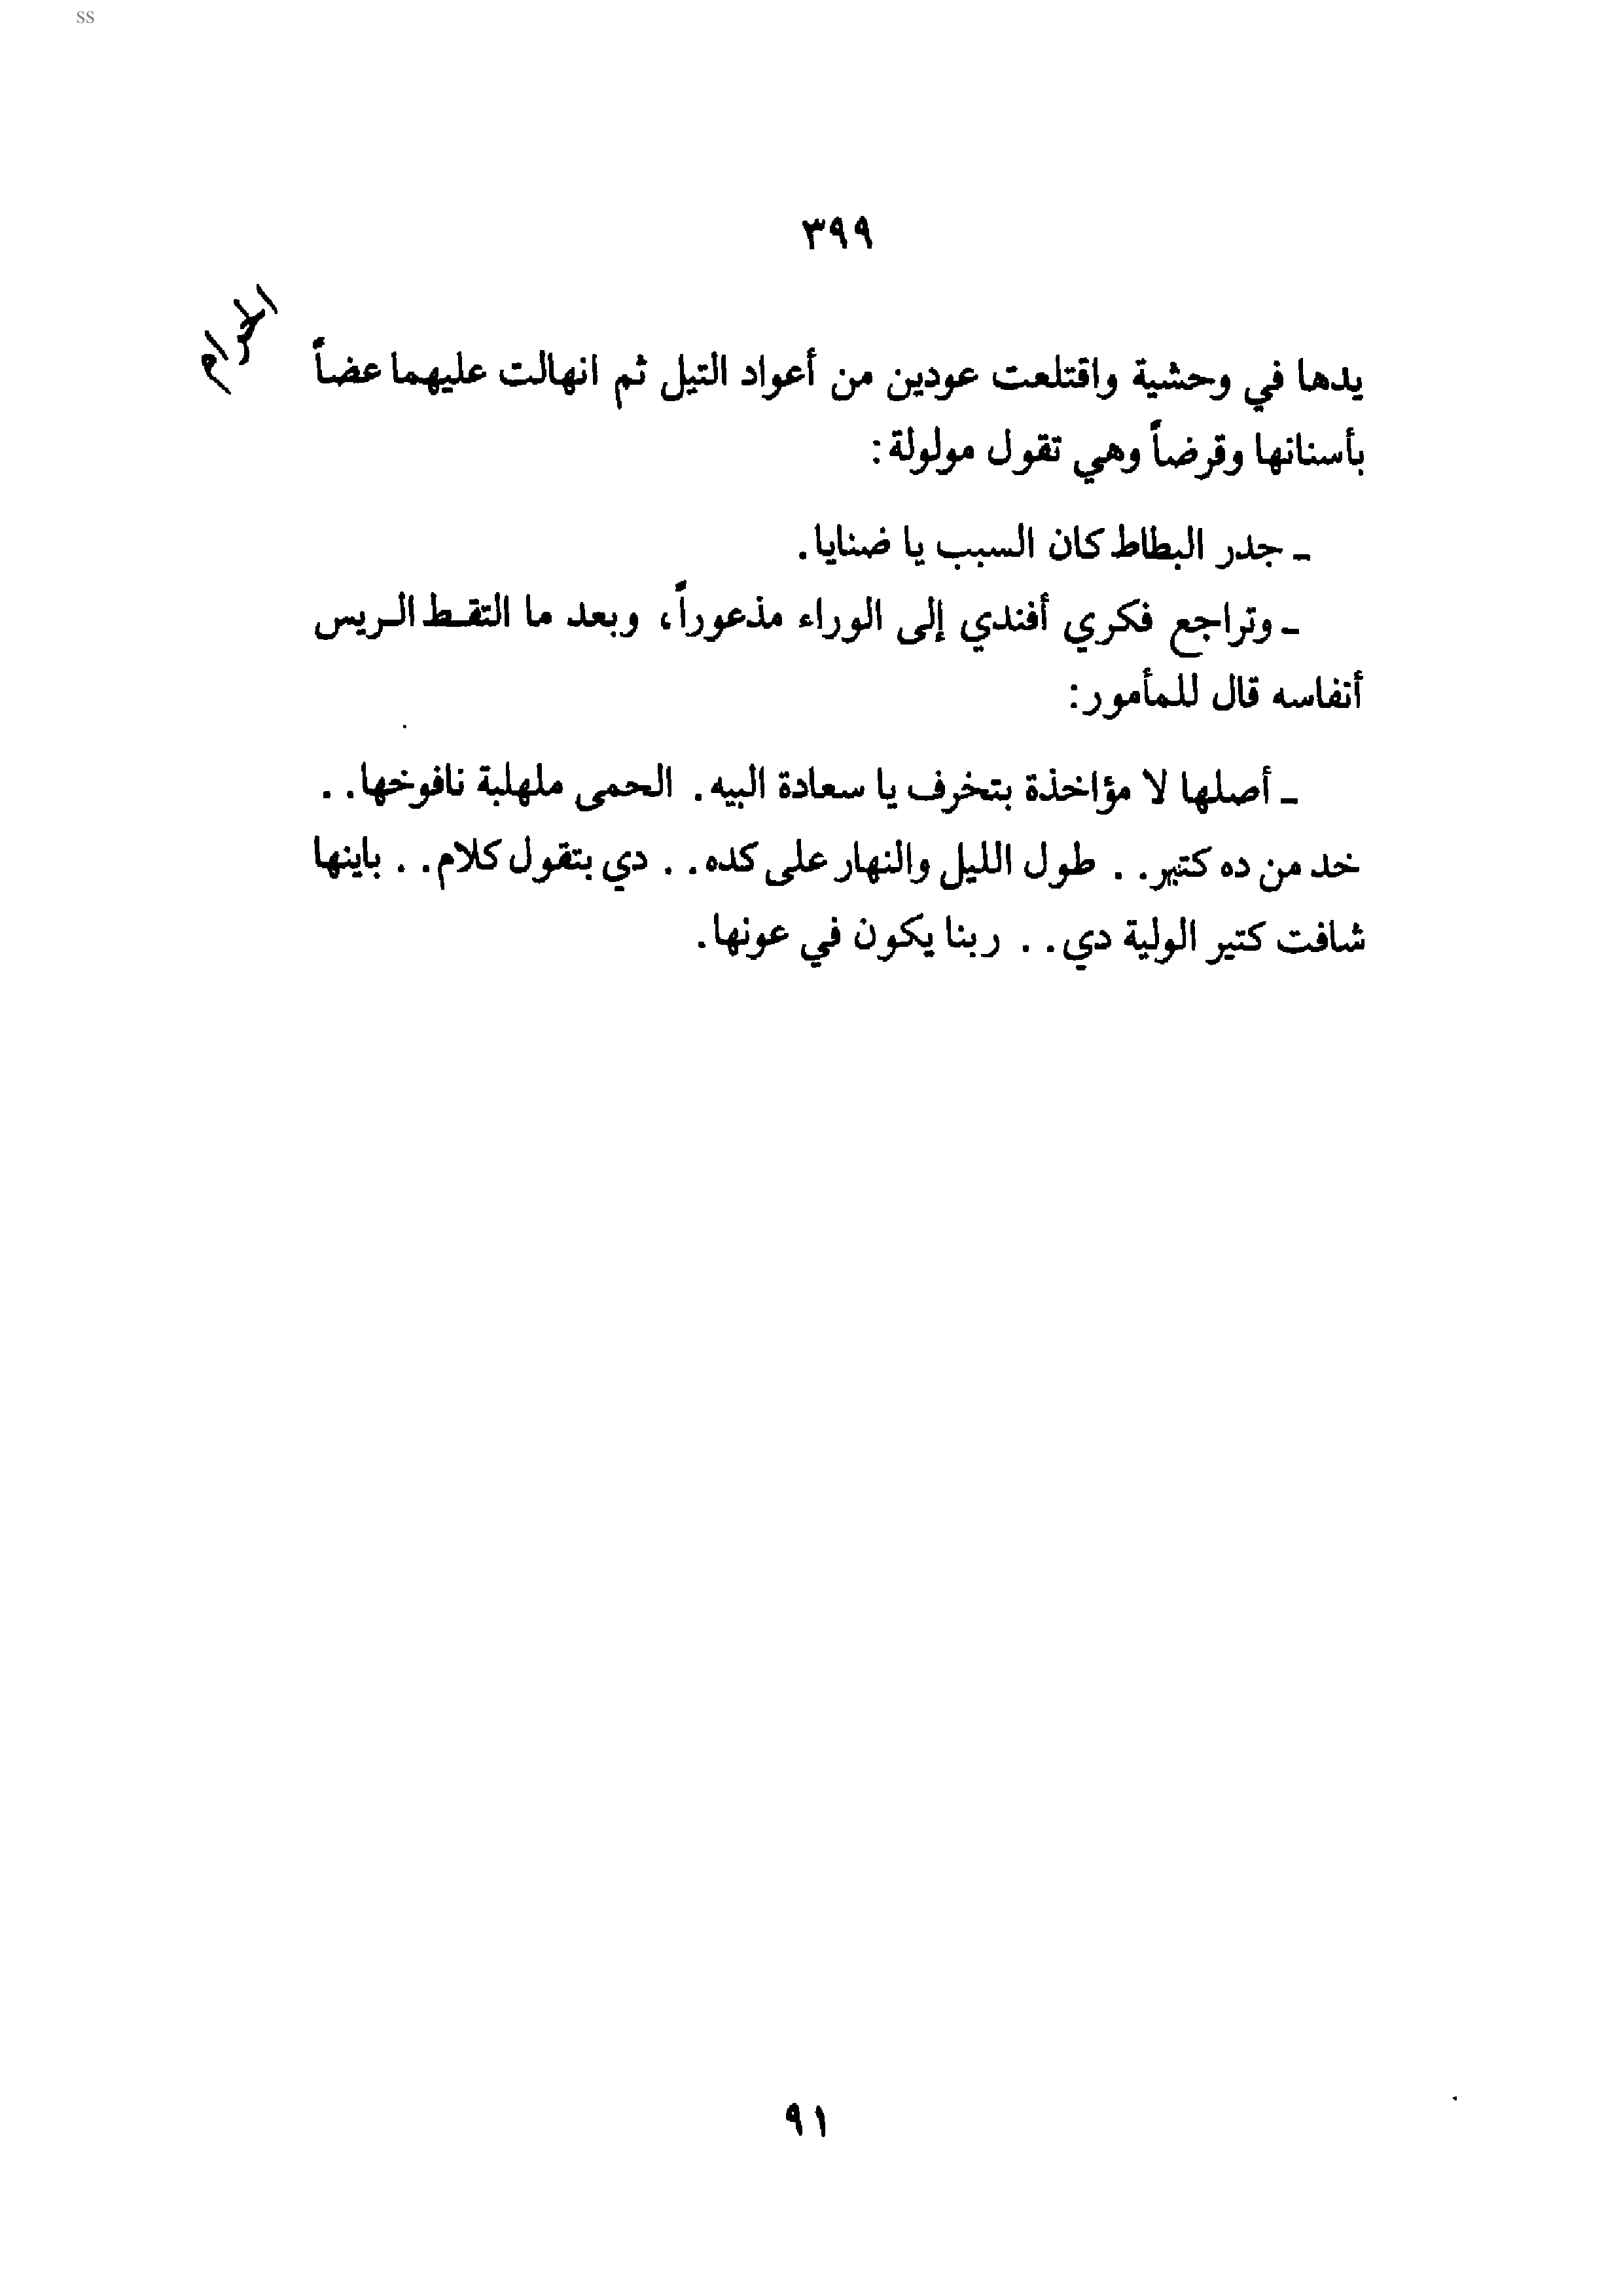 ss
٣٩٩
الحرام
يدها في وحشية واقتلعت عودين من أعواد التيل ثم انهالت عليهما عضاً
بأسنانها وقرضاً وهي تقول مولولة:
ـ جدر البطاط كان السبب يا ضنايا.
ـ وتراجع فكري أفندي إلى الوراء مذعوراً، وبعد ما التقـط الـريس
أنفاسه قال للمأمور:
ـ أصلها لا مؤاخذة بتخرف يا سعادة البيه. الحمى ملهلبة نافوخها..
خد من ده كتير.. طول الليل والنهار على كده.. دي بتقول كلام.. باينها
شافت كتير الولية دي.. ربنا يكون في عونها.
٩١